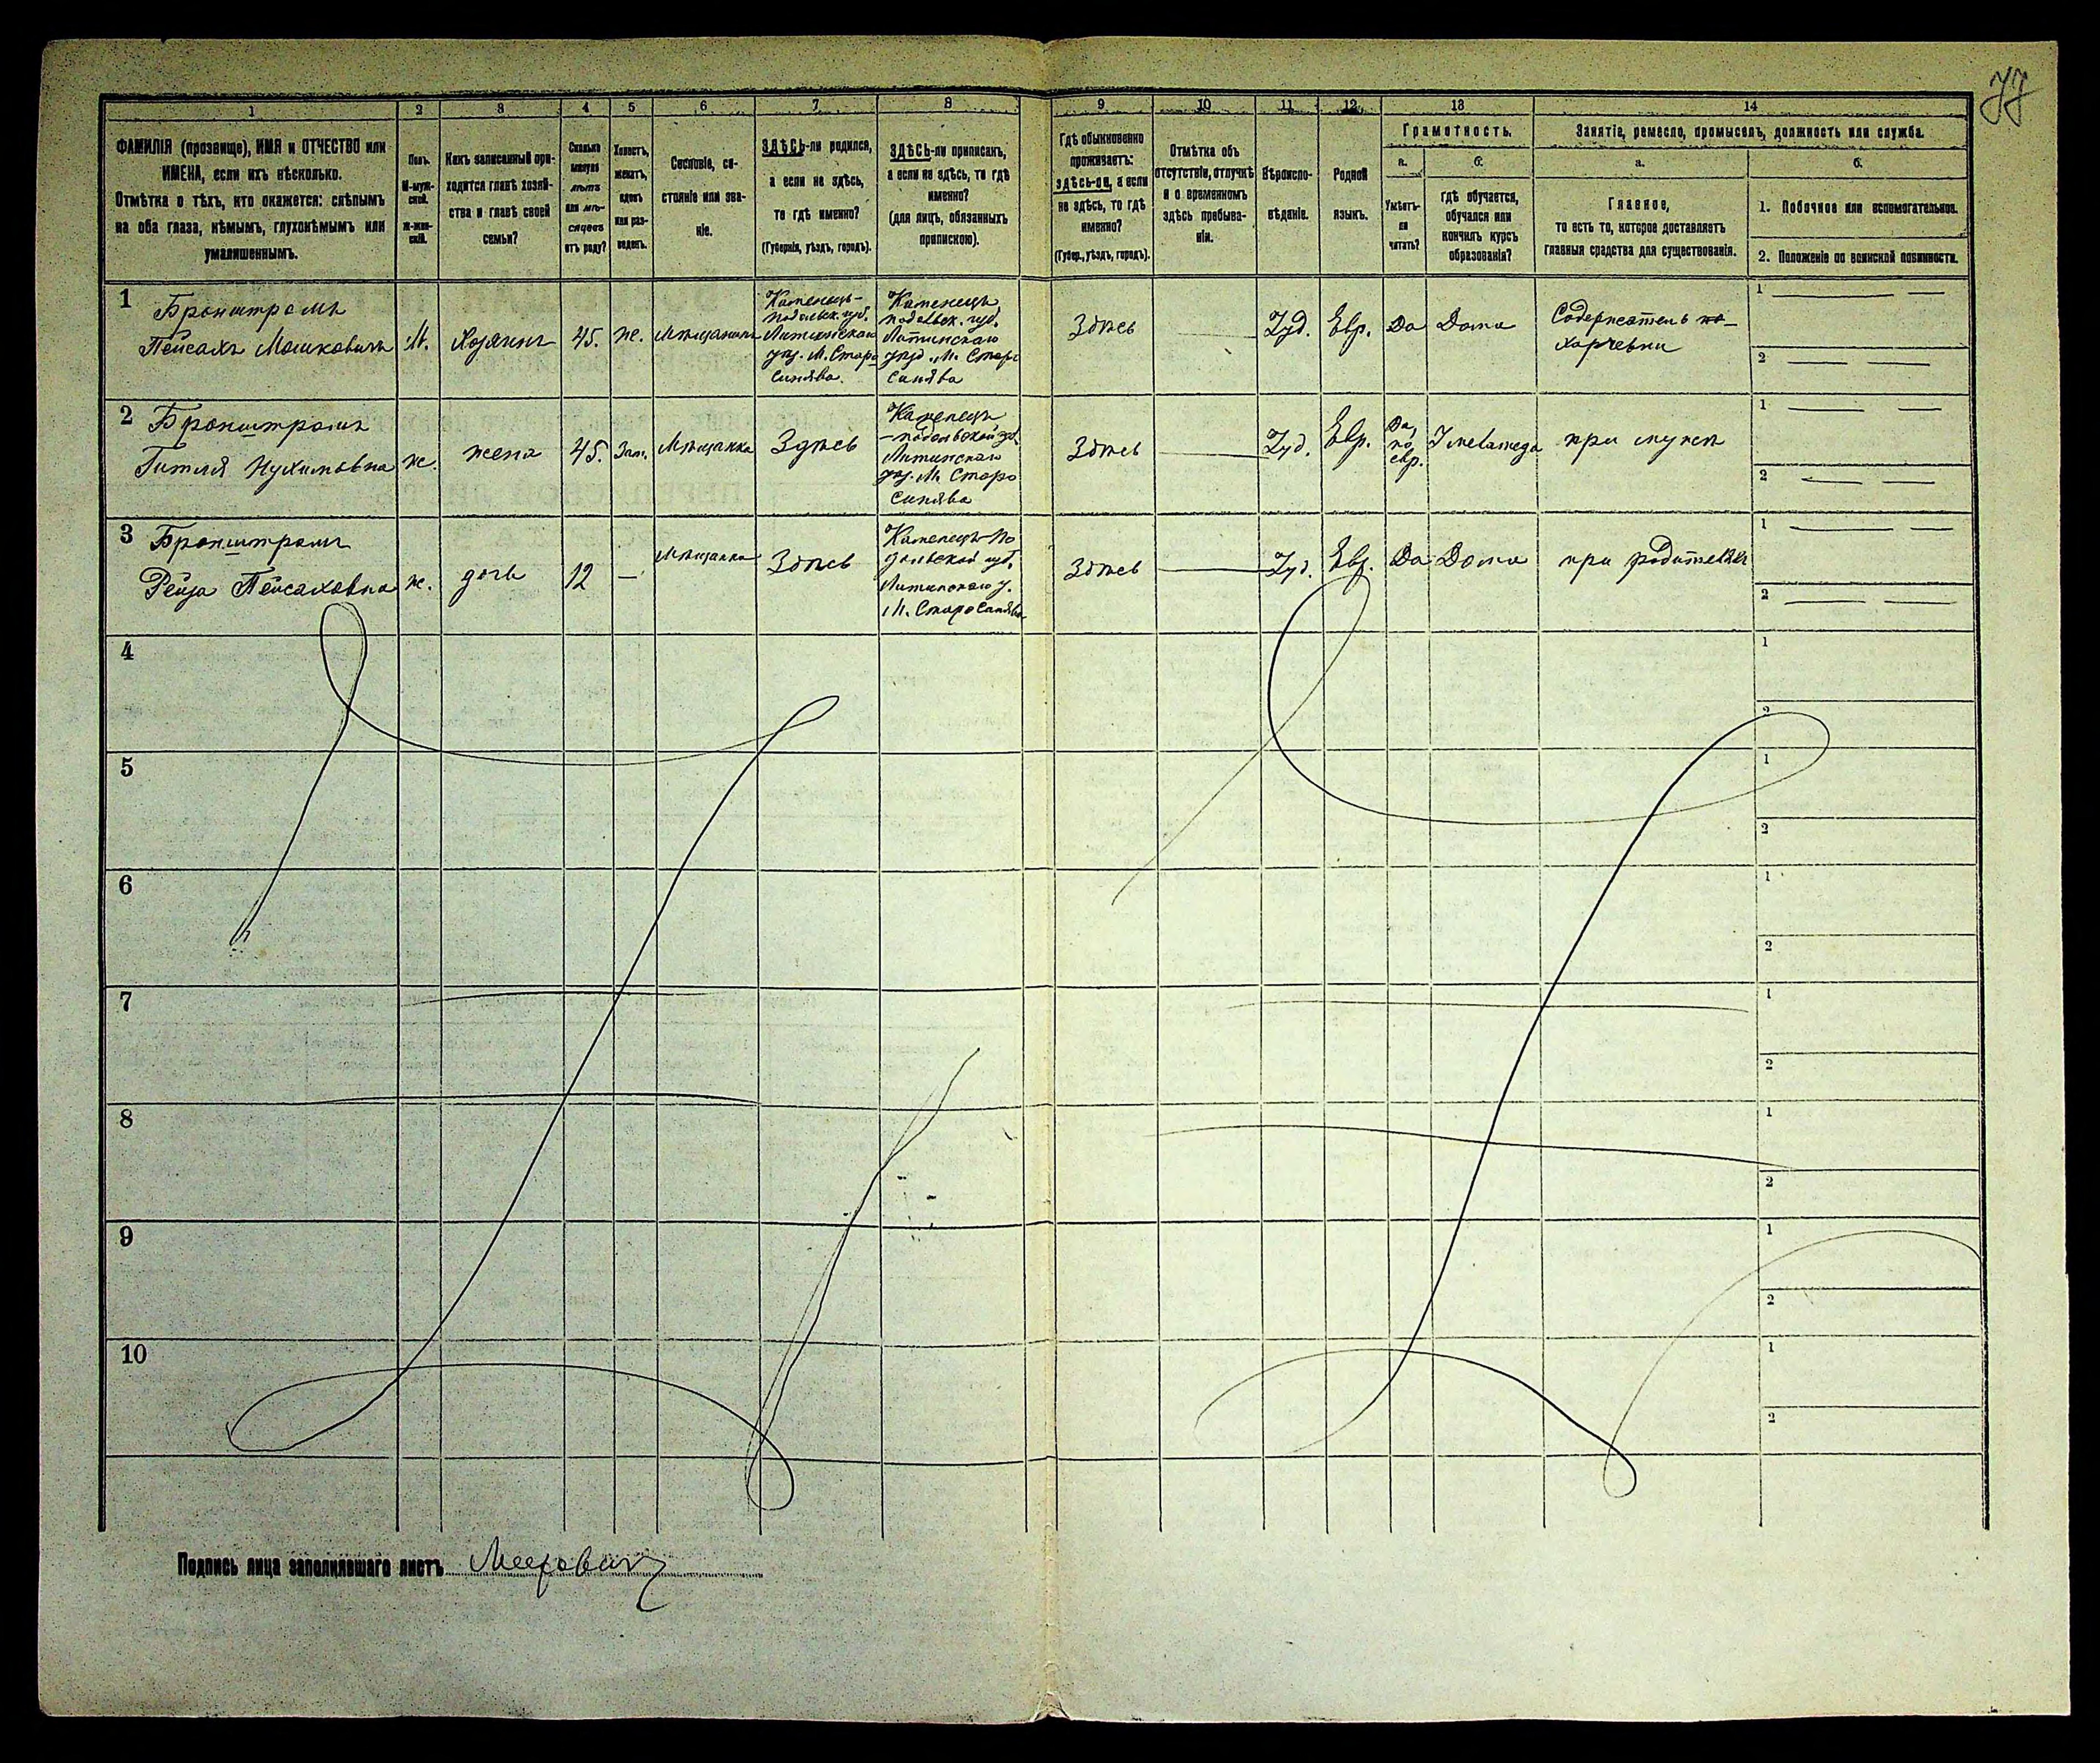 77
1 2 3 4 5 6 7 8 9 10 11 12 13 14
ФАМИЛІЯ (прозвище), ИМЯ и ОТЧЕСТВО или
ИМЕНА, если ихъ нѣсколько.
Отмѣтка о тѣхъ, кто окажется: слѣпымъ
на оба глаза, нѣмымъ, глухонѣмымъ или
умалишеннымъ.
Полъ.
М-муж-
ской.
Ж-жен-
скій.
Какъ записанный при-
ходится главѣ хозяй-
ства и главѣ своей
семьи?
Сколько
минуло
лѣтъ
или мѣ-
сяцевъ
отъ роду?
Холостъ,
женатъ,
вдовъ
или раз-
веденъ.
Сословіе, со-
стояніе или зва-
ніе.
ЗДѢСЬ-ли родился,
а если не здѣсь,
то гдѣ именно?
(Губернія, уѣздъ, городъ).
ЗДѢСЬ-ли приписанъ,
а если не здѣсь, то гдѣ
именно?
(для лицъ, обязанныхъ
припискою).
Гдѣ обыкновенно
проживаетъ:
здѣсь-ли, а если
не здѣсь, то гдѣ
именно?
(Губер., уѣздъ, городъ).
Отмѣтка объ
отсутствіи, отлучкѣ
и о временномъ
здѣсь пребыва-
ніи.
Вѣроиспо-
вѣданіе.
Родной
языкъ.
Грамотность.
а.
Умѣетъ-
ли
читать?
б.
Гдѣ обучается,
обучался или
кончилъ курсъ
образованія?
Занятіе, ремесло, промыселъ, должность или служба.
а.
Главное,
то есть то, которое доставляетъ
главныя средства для существованія.
б.
1. Побочное или вспомогательное.
2. Положеніе по воинской повинности.
1
Бронштромъ
Пейсахъ Мошковичъ
М.
Хозяинъ
45.
ж.
Мѣщанинъ
Каменецъ-
Подольск. губ.
Литинскаго
уѣз. М. Старо
Синява.
Каменецъ
подольск. губ.
Литинскаго
уѣзд. М. Старо
Синява
Здѣсь
Іуд.
Евр.
Да
Дома
Содержатель
харчевни
1
2
2
Бронштромъ
Гитля Нухимовна
ж.
жена
45.
Зам.
Мѣщанка
Здѣсь
Каменецъ
-подольской губ
Литинскаго
уѣз. М. Старо
Синява
Здѣсь
Іуд.
Евр.
Да,
по
евр.
У меламеда
при мужѣ
1
2
3
Бронштромъ
Рейза Пейсаховна
ж.
дочь
12
—
Мѣщанка
Здѣсь
Каменецъ-По
дольской губ.
Литинскаго у.
М. Старо Синява
Здѣсь
Іуд.
Евр.
Да
Дома
при родителяхъ
1
2
4
1
2
5
1
2
6
1
2
7
1
2
8
1
2
9
1
2
10
1
2
Подпись лица заполнившаго листъ Мееровичъ